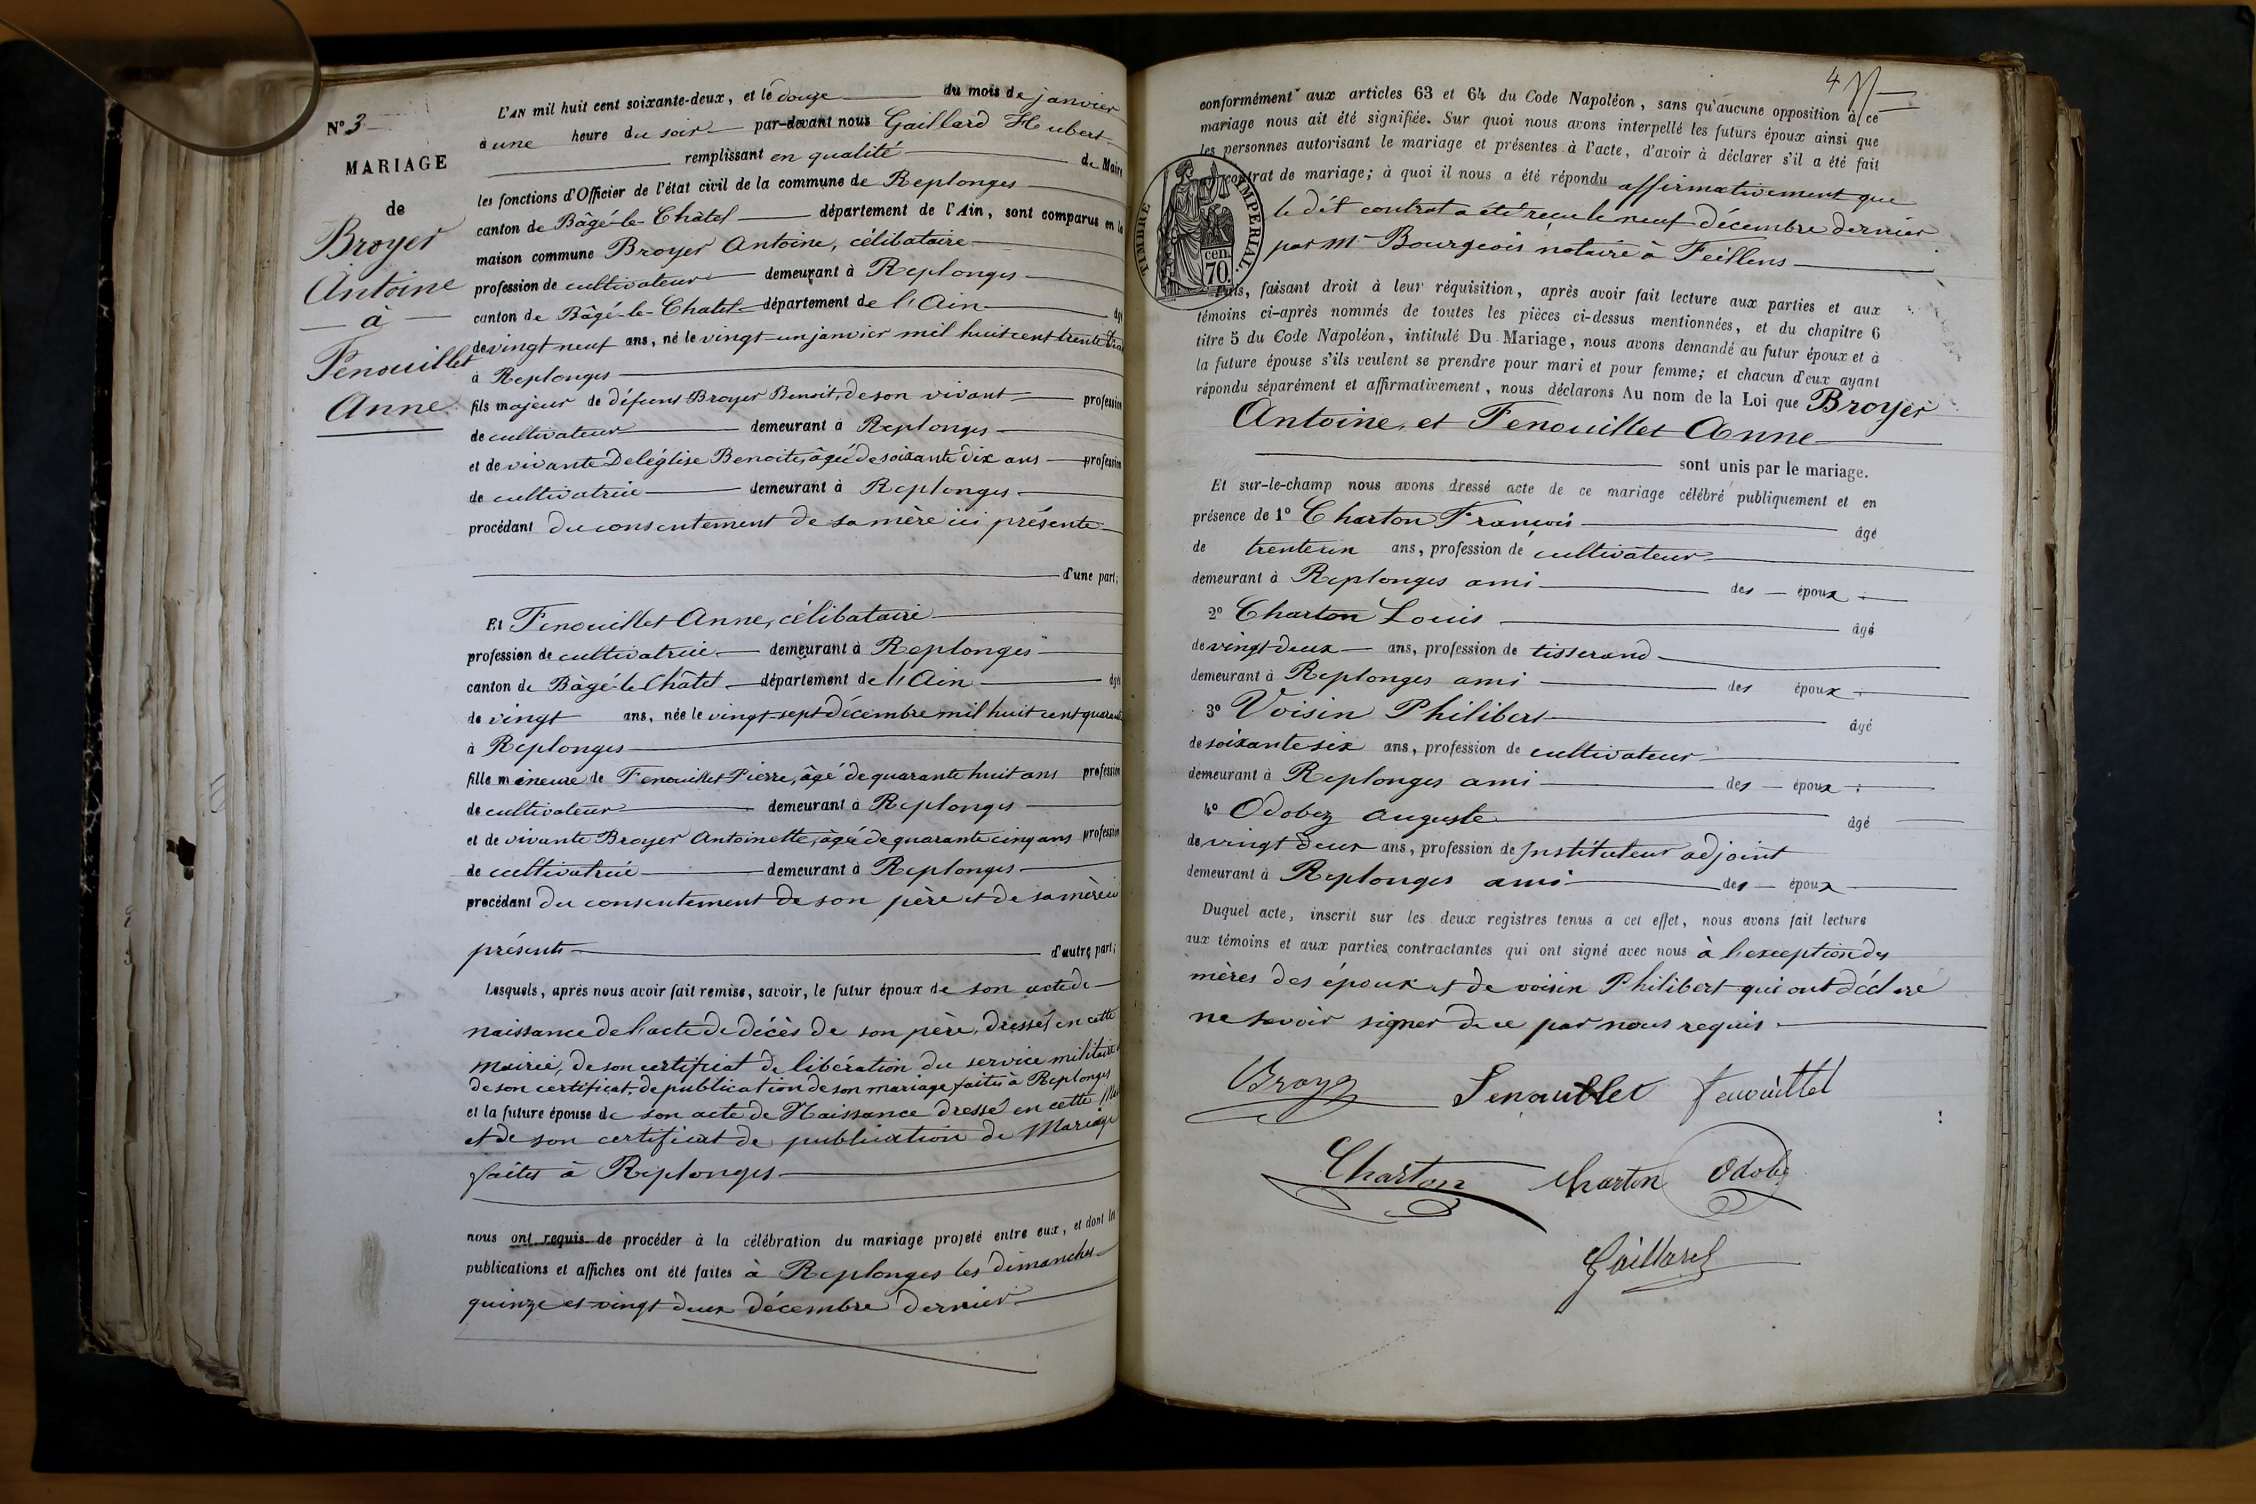 N° 3
MARIAGE
de
Broyer
Antoine
à
Fenouillet
Anne
L'AN mil huit cent soixante-deux, et le douze du mois de janvier
à une heure du soir par-devant nous Gaillard Hubert
remplissant en qualité de Maire
les fonctions d'Officier de l'état civil de la commune de Replonges
canton de Bâgé-le-Châtel département de l'Ain, sont comparus en la
maison commune Broyer Antoine, célibataire
profession de cultivateur demeurant à Replonges
canton de Bâgé-le-Chatel département de l'Ain âgé
de vingt neuf ans, né le vingt-un janvier mil huit cent trente trois
à Replonges
fils majeur de défunt Broyer Benoit, de son vivant profession
de cultivateur demeurant à Replonges
et de vivante Deléglise Benoite, âgée de soixante dix ans profession
de cultivatrice demeurant à Replonges
procédant du consentement de sa mère ici présente
d'une part;
Et Fenouillet Anne, célibataire
profession de cultivatrice demeurant à Replonges
canton de Bâgé-le-Châtel département de l'Ain âgée
de vingt ans, née le vingt-sept décembre mil huit cent quarante
à Replonges
fille mineure de Fenouillet Pierre, âgé de quarante huit ans profession
de cultivateur demeurant à Replonges
et de vivante Broyer Antoinette, âgée de quarante cinq ans profession
de cultivatrice demeurant à Replonges
procédant du consentement de son père et de sa mère ici
présents d'autre part;
Lesquels, après nous avoir fait remise, savoir, le futur époux de son acte de
naissance de l'acte de décès de son père, dressés en cette
Mairie, de son certificat de libération du service militaire
de son certificat de publication de son mariage faites à Replonges
et la future épouse de son acte de Naissance dressé en cette
et de son certificat de publication de Mariage
faites à Replonges
nous ont requis de procéder à la célébration du mariage projeté entre eux, et dont les
publications et affiches ont été faites à Replonges les dimanches
quinze et vingt deux décembre dernier
4
conformément aux articles 63 et 64 du Code Napoléon, sans qu'aucune opposition à ce
mariage nous ait été signifiée. Sur quoi nous avons interpellé les futurs époux ainsi que
les personnes autorisant le mariage et présentes à l'acte, d'avoir à déclarer s'il a été fait
contrat de mariage; à quoi il nous a été répondu affirmativement que
le dit contrat a été reçu le neuf décembre dernier
par Me Bourgeois notaire à Feillens
TIMBRE IMPERIAL.
cen. 70
Puis, faisant droit à leur réquisition, après avoir fait lecture aux parties et aux
témoins ci-après nommés de toutes les pièces ci-dessus mentionnées, et du chapitre 6
titre 5 du Code Napoléon, intitulé Du Mariage, nous avons demandé au futur époux et à
la future épouse s'ils veulent se prendre pour mari et pour femme; et chacun d'eux ayant
répondu séparément et affirmativement, nous déclarons Au nom de la Loi que Broyer
Antoine, et Fenouillet Anne
sont unis par le mariage.
Et sur-le-champ nous avons dressé acte de ce mariage célébré publiquement et en
présence de 1° Charton François âgé
de trente un ans, profession de cultivateur
demeurant à Replonges ami des époux
2° Charton Louis âgé
de vingt deux ans, profession de tisserand
demeurant à Replonges ami des époux
3° Voisin Philibert âgé
de soixante six ans, profession de cultivateur
demeurant à Replonges ami des époux
4° Odobez Auguste âgé
de vingt deux ans, profession de Instituteur adjoint
demeurant à Replonges ami des époux
Duquel acte, inscrit sur les deux registres tenus à cet effet, nous avons fait lecture
aux témoins et aux parties contractantes qui ont signé avec nous à l'exception des
mères des époux et de voisin Philibert qui ont déclaré
ne savoir signer de ce par nous requis
Broyer Fenouillet fenouillet
Charton Charton Odobez
Gaillard